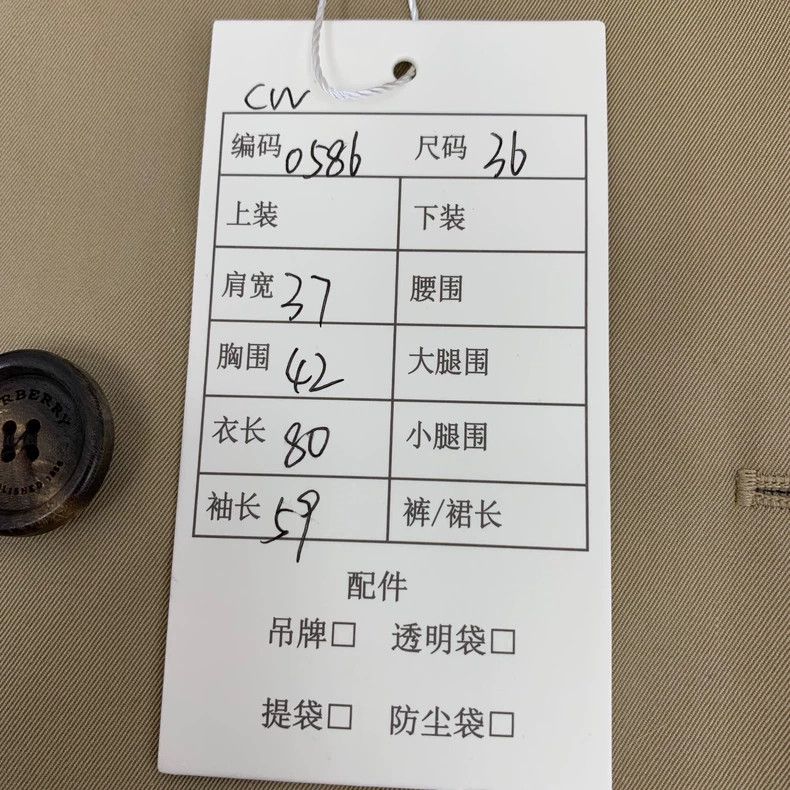 CW
编码 0586 尺码 36
上装 下装
肩宽 37 腰围
胸围 42 大腿围
衣长 80 小腿围
袖长 59 裤/裙长
配件
吊牌□ 透明袋□
提袋□ 防尘袋□
RBERRY